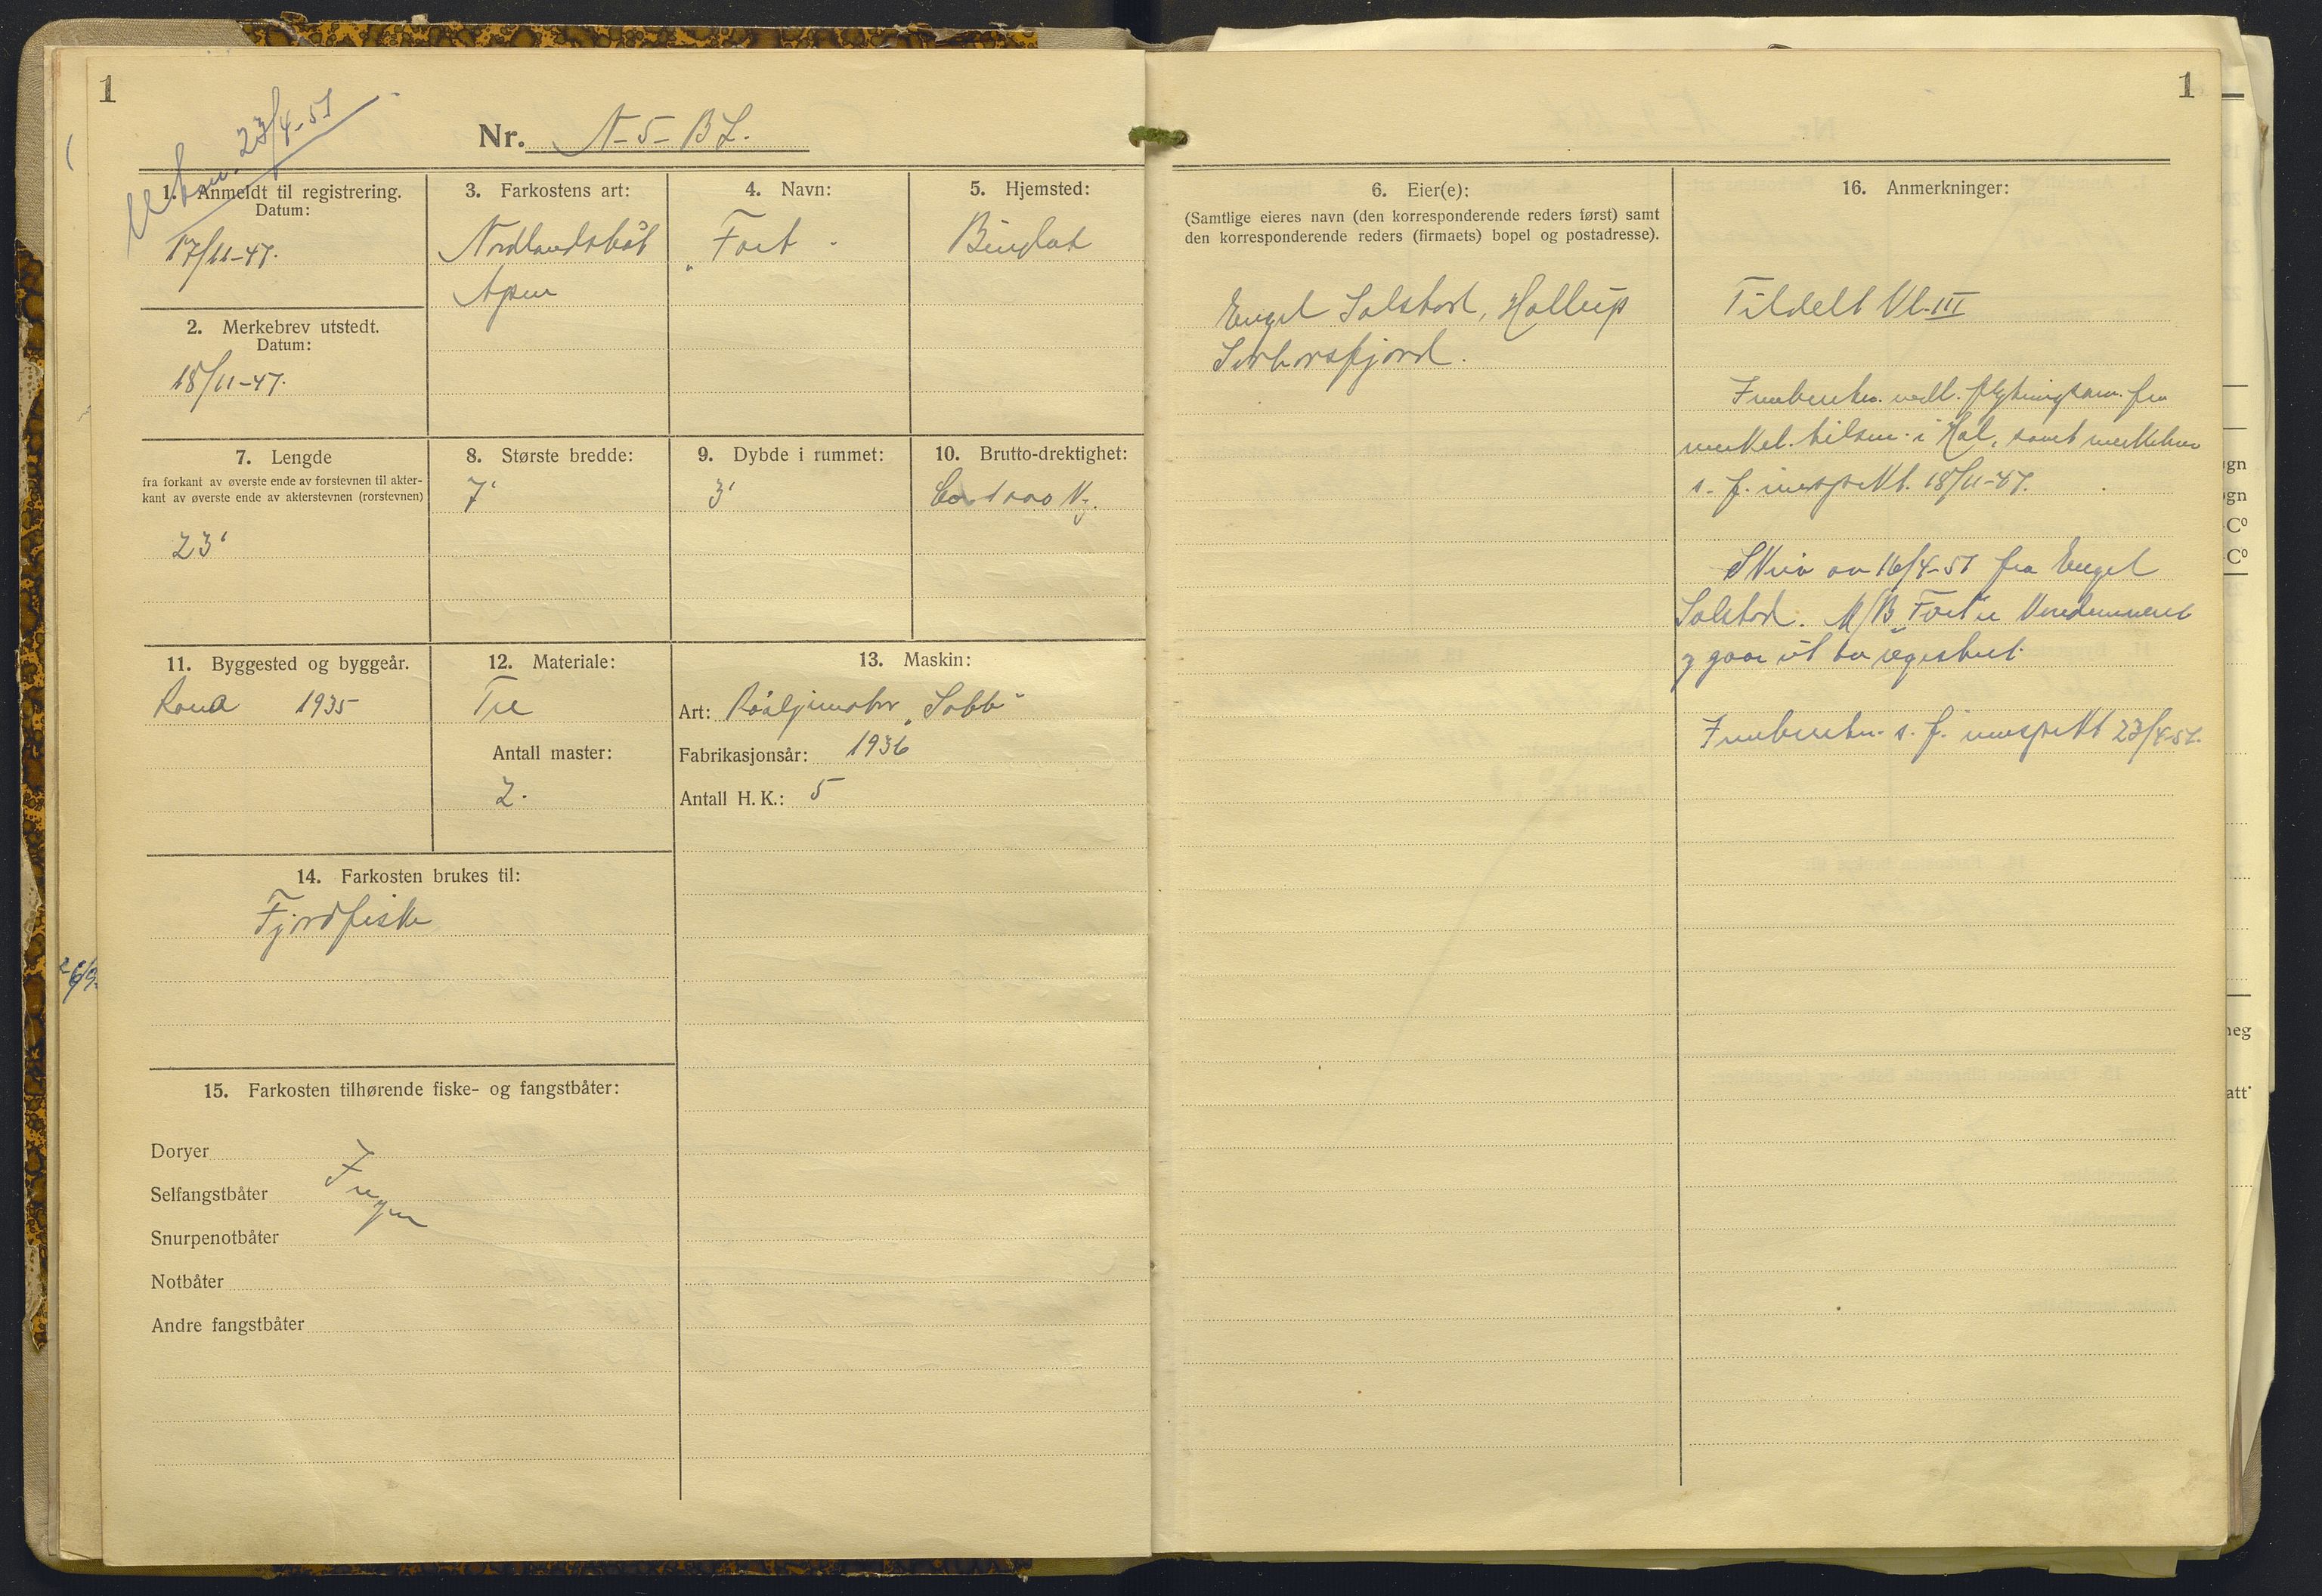 1
23/4-51
Nr. N-5-BL.
1. Anmeldt til registrering.
Datum:
17/11-47.
2. Merkebrev utstedt.
Datum:
18/11-47.
3. Farkostens art:
Nordlandsbåt
Åpen
4. Navn:
"Fort
5. Hjemsted:
Bindal
7. Lengde
fra forkant av øverste ende av forstevnen til akter-
kant av øverste ende av akterstevnen (rorstevnen)
23'
8. Største bredde:
7'
9. Dybde i rummet:
3'
10. Brutto-drektighet:
Ca 1000 kg.
11. Byggested og byggeår.
Rana 1935
12. Materiale:
Tre
Antall master:
2.
13. Maskin:
Art: Råoljemotor "Sabb"
Fabrikasjonsår: 1936
Antall H. K.: 5
14. Farkosten brukes til:
Fjordfiske
15. Farkosten tilhørende fiske- og fangstbåter:
Doryer
Selfangstbåter
Snurpenotbåter
Notbåter
Andre fangstbåter
Ingen
26/9
1
6. Eier(e):
(Samtlige eieres navn (den korresponderende reders først) samt
den korresponderende reders (firmaets) bopel og postadresse).
Engel Solstad,
16. Anmerkninger:
Tildelt Vl. III
Innberetn. vedl. flytningsanm. fra
merkel. tilsm. i Hal, samt merkebrev
s. f. inspekt. 18/11-47.
Skriv av 16/4-51 fra Engel
Solstad. M/B "Fort" er kondemneret
og gaar ut av registret.
Innberetn. s. f. inspekt 23/4-51.
gn
gn
C⁰
C⁰
eg
att